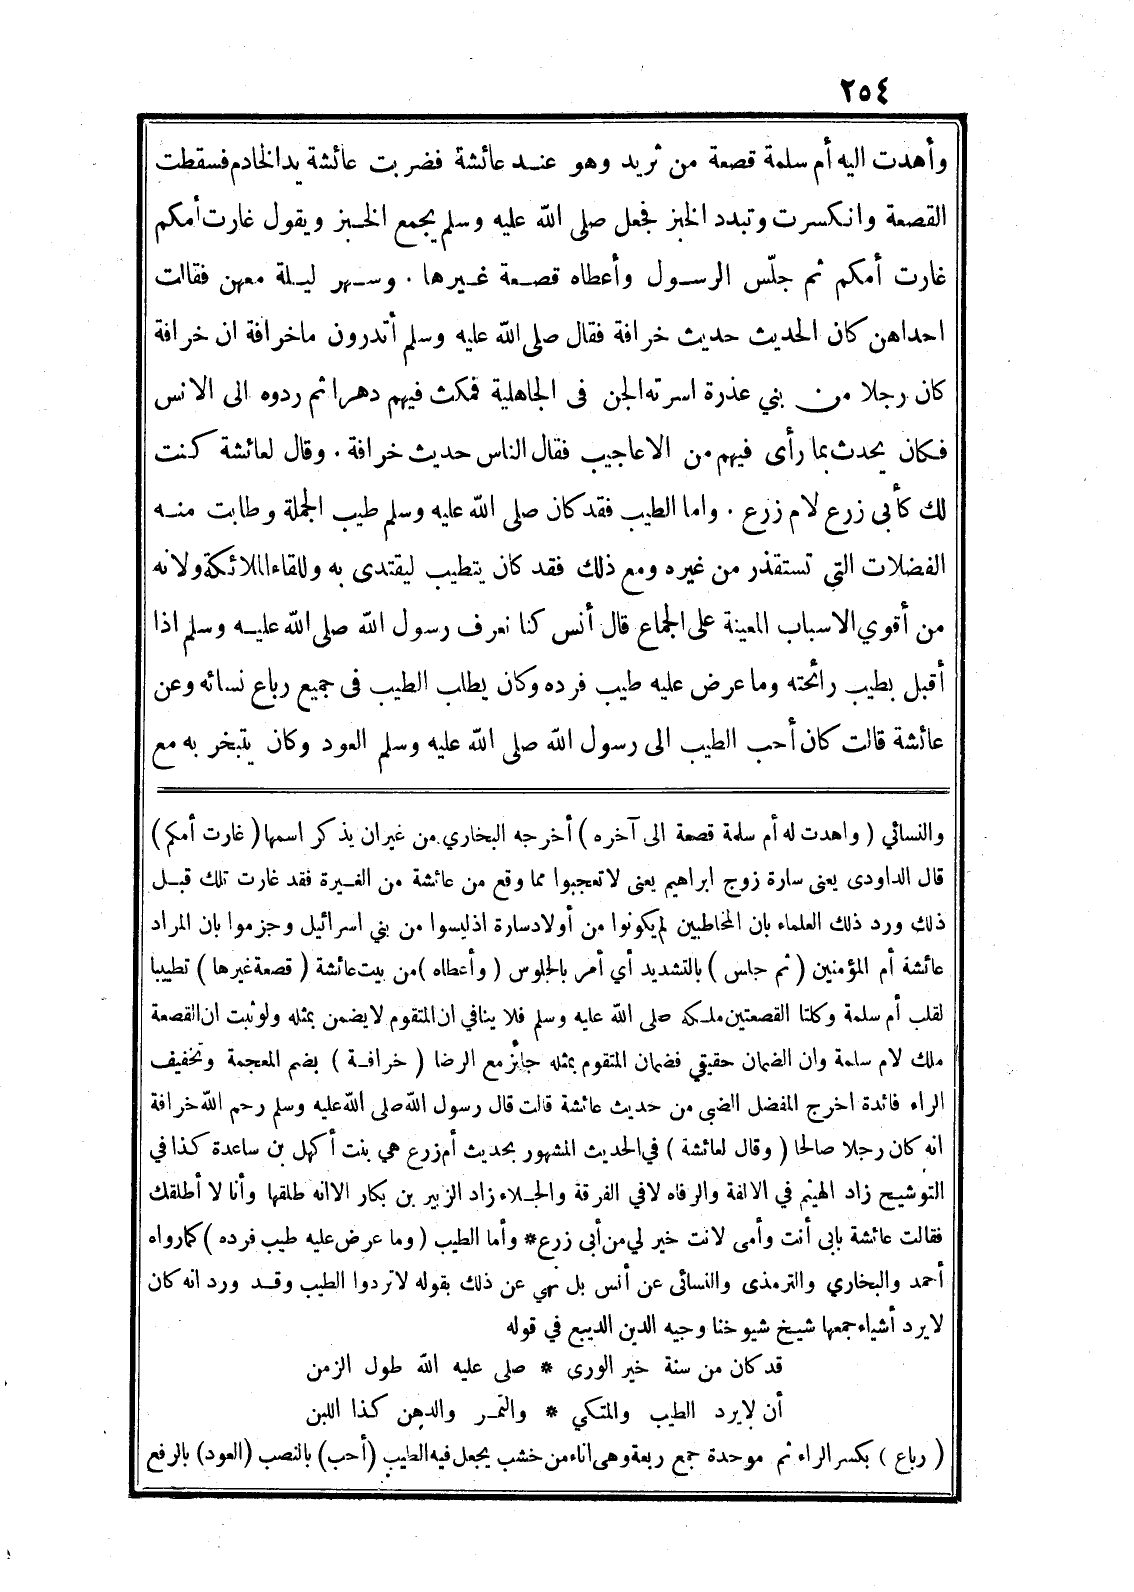 ٢٥٤
وأهدت اليه أم سلمة قصعة من ثريد وهو عند عائشة فضربت عائشة يد الخادم فسقطت
القصعة وانكسرت وتبدد الخبز فجعل صلى الله عليه وسلم يجمع الخبز ويقول غارت أمكم
غارت أمكم ثم جلّس الرسول وأعطاه قصعة غيرها . وسهر ليلة معهن فقالت
احداهن كان الحديث حديث خرافة فقال صلى الله عليه وسلم أتدرون ماخرافة ان خرافة
كان رجلا من بني عذرة اسرته الجن فى الجاهلية فمكث فيهم دهرا ثم ردوه الى الانس
فكان يحدث بما رأى فيهم من الاعاجيب فقال الناس حديث خرافة . وقال لعائشة كنت
لك كأبى زرع لام زرع . واما الطيب فقد كان صلى الله عليه وسلم طيب الجملة وطابت منه
الفضلات التي تستقذر من غيره ومع ذلك فقد كان يتطيب ليقتدى به وللقاء الملائكة ولانه
من أقوي الاسباب المعينة على الجماع قال أنس كنا نعرف رسول الله صلى الله عليه وسلم اذا
أقبل بطيب رائحته وما عرض عليه طيب فرده وكان يطلب الطيب فى جميع رباع نسائه وعن
عائشة قالت كان أحب الطيب الى رسول الله صلى الله عليه وسلم العود وكان يتبخر به مع
والنسائي ( واهدت له أم سلمة قصعة الى آخره ) أخرجه البخاري من غير ان يذكر اسمها ( غارت أمكم )
قال الداودى يعنى سارة زوج ابراهيم يعنى لا تعجبوا مما وقع من عائشة من الغيرة فقد غارت تلك قبل
ذلك ورد ذلك العلماء بان المخاطبين لم يكونوا من أولاد سارة اذ ليسوا من بني اسرائيل وجزموا بان المراد
عائشة أم المؤمنين ( ثم جلس ) بالتشديد أي أمر بالجلوس ( وأعطاه ) من بيت عائشة ( قصعة غيرها ) تطييبا
لقلب أم سلمة وكلتا القصعتين ملكه صلى الله عليه وسلم فلا ينافي ان المتقوم لا يضمن بمثله ولو ثبت ان القصعة
ملك لام سلمة وان الضمان حقيقي فضمان المتقوم بمثله جائز مع الرضا ( خرافة ) بضم المعجمة وتخفيف
الراء فائدة اخرج المفضل الضبي من حديث عائشة قالت قال رسول الله صلى الله عليه وسلم رحم الله خرافة
انه كان رجلا صالحا ( وقال لعائشة ) في الحديث المشهور بحديث أم زرع هي بنت أكهل بن ساعدة كذا في
التوشيح زاد الهيثم في الالفة والرفاه لا في الفرقة والجلاء زاد الزبير بن بكار الا انه طلقها وأنا لا أطلقك
فقالت عائشة بابى أنت وأمى لانت خير لي من أبى زرع * وأما الطيب ( وما عرض عليه طيب فرده ) كما رواه
أحمد والبخاري والترمذى والنسائى عن أنس بل نهي عن ذلك بقوله لا تردوا الطيب وقد ورد انه كان
لا يرد أشياء جمعها شيخ شيوخنا وجيه الدين الديبع في قوله
قد كان من سنة خير الورى * صلى عليه الله طول الزمن
أن لا يرد الطيب والمتكي * والتمر والدهن كذا اللبن
( رباع ) بكسر الراء ثم موحدة جمع ربعة وهى اناء من خشب يجعل فيه الطيب (أحب) بالنصب (العود) بالرفع